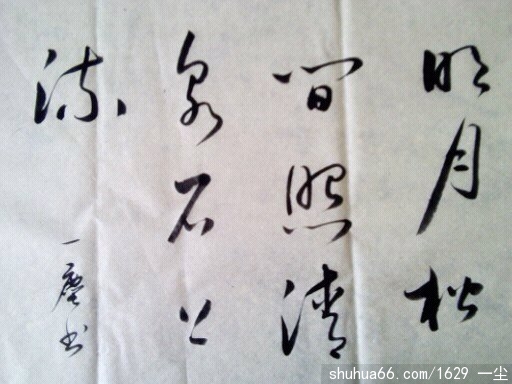 明月松
间照清
泉石上
流
一塵书
shuhua66.com/1629 一尘